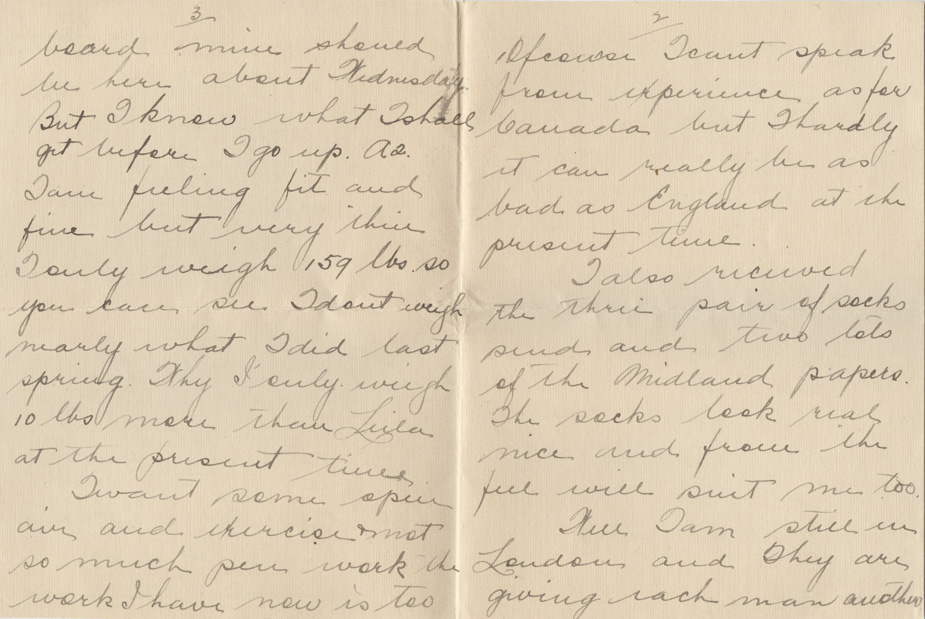 2
Ofcourse I cant speak
from experience as for
Canada but I hardly
it can really be as
bad as England at the
present time.
I also received
the three pair of socks
send and two lots
of the Midland papers.
The socks look real
nice and from the
feel will suit me too.
Well I am still in
London and they are
giving each man another
3
board mine should
be here about Wednesday.
But I know what I shall
get before I go up. A2.
I am feeling fit and
fine but very thin
I only weigh 159 lbs. so
you can see I dont weigh
nearly what I did last
spring. Why I only weigh
10 lbs more than
at the present time.
I want some open
air and exercise & not
so much pen work the
work I have now is too